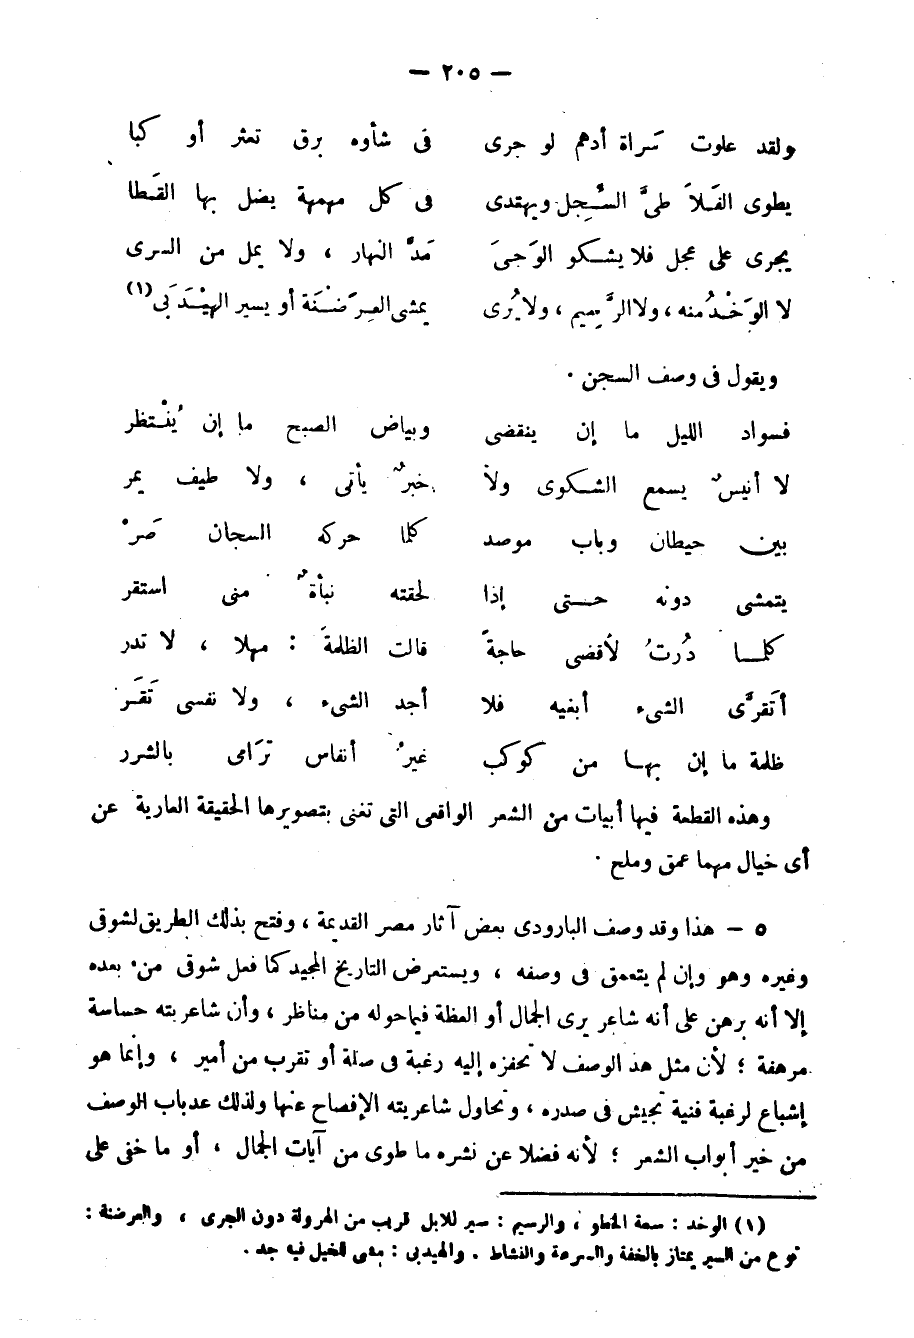 — ٢٠٥ —
ولقد علوت سَراة أدهم لو جرى فى شأوه برق تعثر أو كبا
يطوى الفَلاَ طىَّ السِّجل ويهتدى فى كل مهمهة يضل بها القَطا
يجرى على عجل فلا يشكو الوَجىَ مَدَّ النهار ، ولا يمل من السرى
لا الوَخْدُ منه ، ولا الرَّسيم ، ولا يُرى يمشى العِرَضْنَة أو يسير الهيْدَبَى (١)
ويقول فى وصف السجن .
فسواد الليل ما إن ينقضى وبياض الصبح ما إن يُنْتظر
لا أنيسٌ يسمع الشكوى ولا خبرٌ يأتى ، ولا طيف يمر
بين حيطان وباب موصد كلما حركه السجان صَرْ
يتمشى دونه حتى إذا لحقته نبأةٌ منى استقر
كلما دُرتُ لأقضى حاجةً قالت الظلمةَ : مهلا ، لا تدر
أتَقرَّى الشىء أبغيه فلا أجد الشىء ، ولا نفسى تَقَر
ظلمة ما إن بها من كوكب غيرُ أنفاس تَرَامى بالشرر
وهذه القطعة فيها أبيات من الشعر الواقعى التى تغنى بتصويرها الحقيقة العارية عن
أى خيال مهما عمق وملح .
٥ – هذا وقد وصف البارودى بعض آثار مصر القديمة ، وفتح بذلك الطريق لشوقى
وغيره وهو وإن لم يتعمق فى وصفه ، ويستعرض التاريخ المجيد كما فعل شوقى من بعده
إلا أنه برهن على أنه شاعر يرى الجمال أو العظة فيما حوله من مناظر ، وأن شاعريته حساسة
مرهفة ؛ لأن مثل هذ الوصف لا تحفزه إليه رغبة فى صلة أو تقرب من أمير ، وإنما هو
إشباع لرغبة فنية تجيش فى صدره ، وتحاول شاعريته الإفصاح عنها ولذلك عدباب الوصف
من خير أبواب الشعر ؛ لأنه فضلا عن نشره ما طوى من آيات الجمال ، أو ما خفى على
(١) الوخد : سعة الخطو ، والرسيم : سير للابل قريب من الهرولة دون الجرى ، والعرضنة :
نوع من السير يمتاز بالخفة والسرعة والنشاط . والهيدبى : مشى للخيل فيه جد .